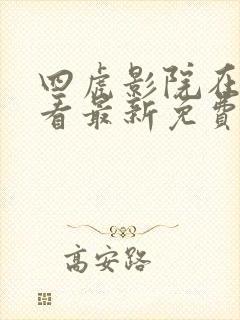 四虎影院在
看最新免费
高安路